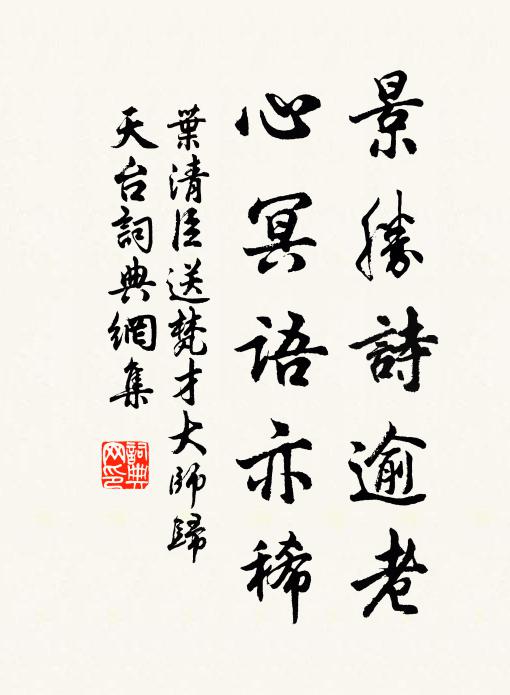 景勝詩逾老
心冥語亦稀
葉清臣送梵才大師歸
天台詞典網集
詞典網印